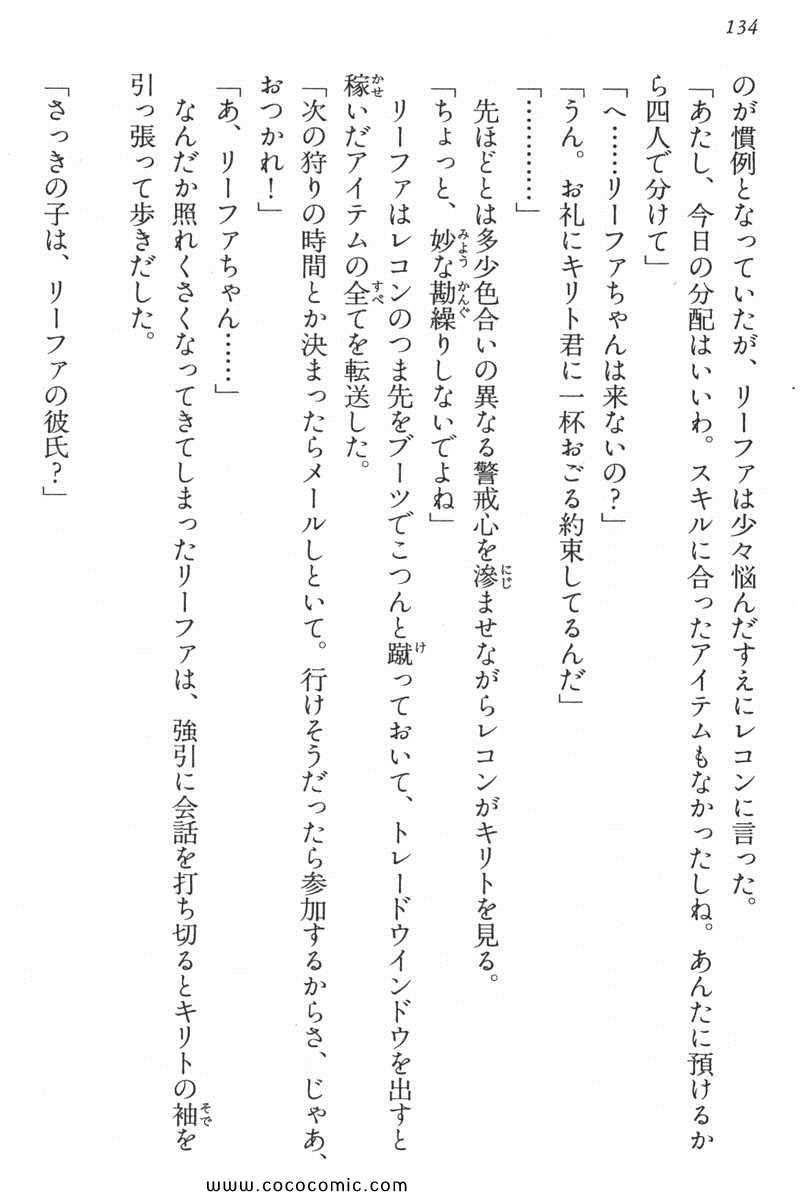 134
のが慣例となっていたが、リーファは少々悩んだすえにレコンに言った。
「あたし、今日の分配はいいわ。スキルに合ったアイテムもなかったしね。あんたに預けるか
ら四人で分けて」
「へ……リーファちゃんは来ないの？」
「うん。お礼にキリト君に一杯おごる約束してるんだ」
「…………」
先ほどとは多少色合いの異なる警戒心を滲ませながらレコンがキリトを見る。
「ちょっと、妙な勘繰りしないでよね」
リーファはレコンのつま先をブーツでこつんと蹴っておいて、トレードウインドウを出すと
稼いだアイテムの全てを転送した。
「次の狩りの時間とか決まったらメールしといて。行けそうだったら参加するからさ、じゃあ、
おつかれ！」
「あ、リーファちゃん……」
なんだか照れくさくなってきてしまったリーファは、強引に会話を打ち切るとキリトの袖を
引っ張って歩きだした。
「さっきの子は、リーファの彼氏？」
www.cococomic.com